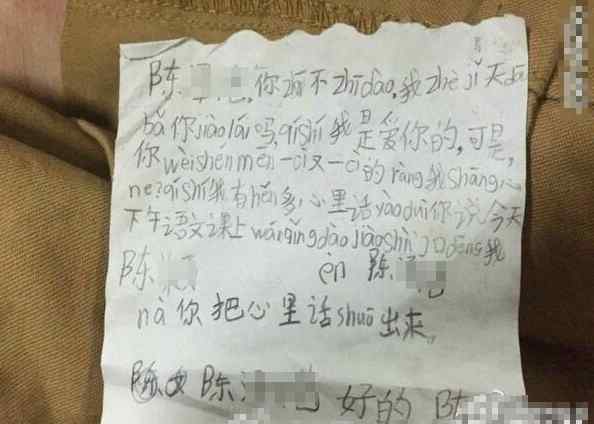 陈 你zhī不zhīdào,我zhè jǐ天dōu
bǎ你jiào lái吗,qíshí我是爱你的,可是,
你wèishén men一cì又一cì的ràng我shāng心
ne?qíshí我有hěn多心里话yào duì你说 今天
下午语文课上wán qǐng dào jiàoshì口děng我
陈 èn 陈
nà你把心里话shuō出来。
陈 好的